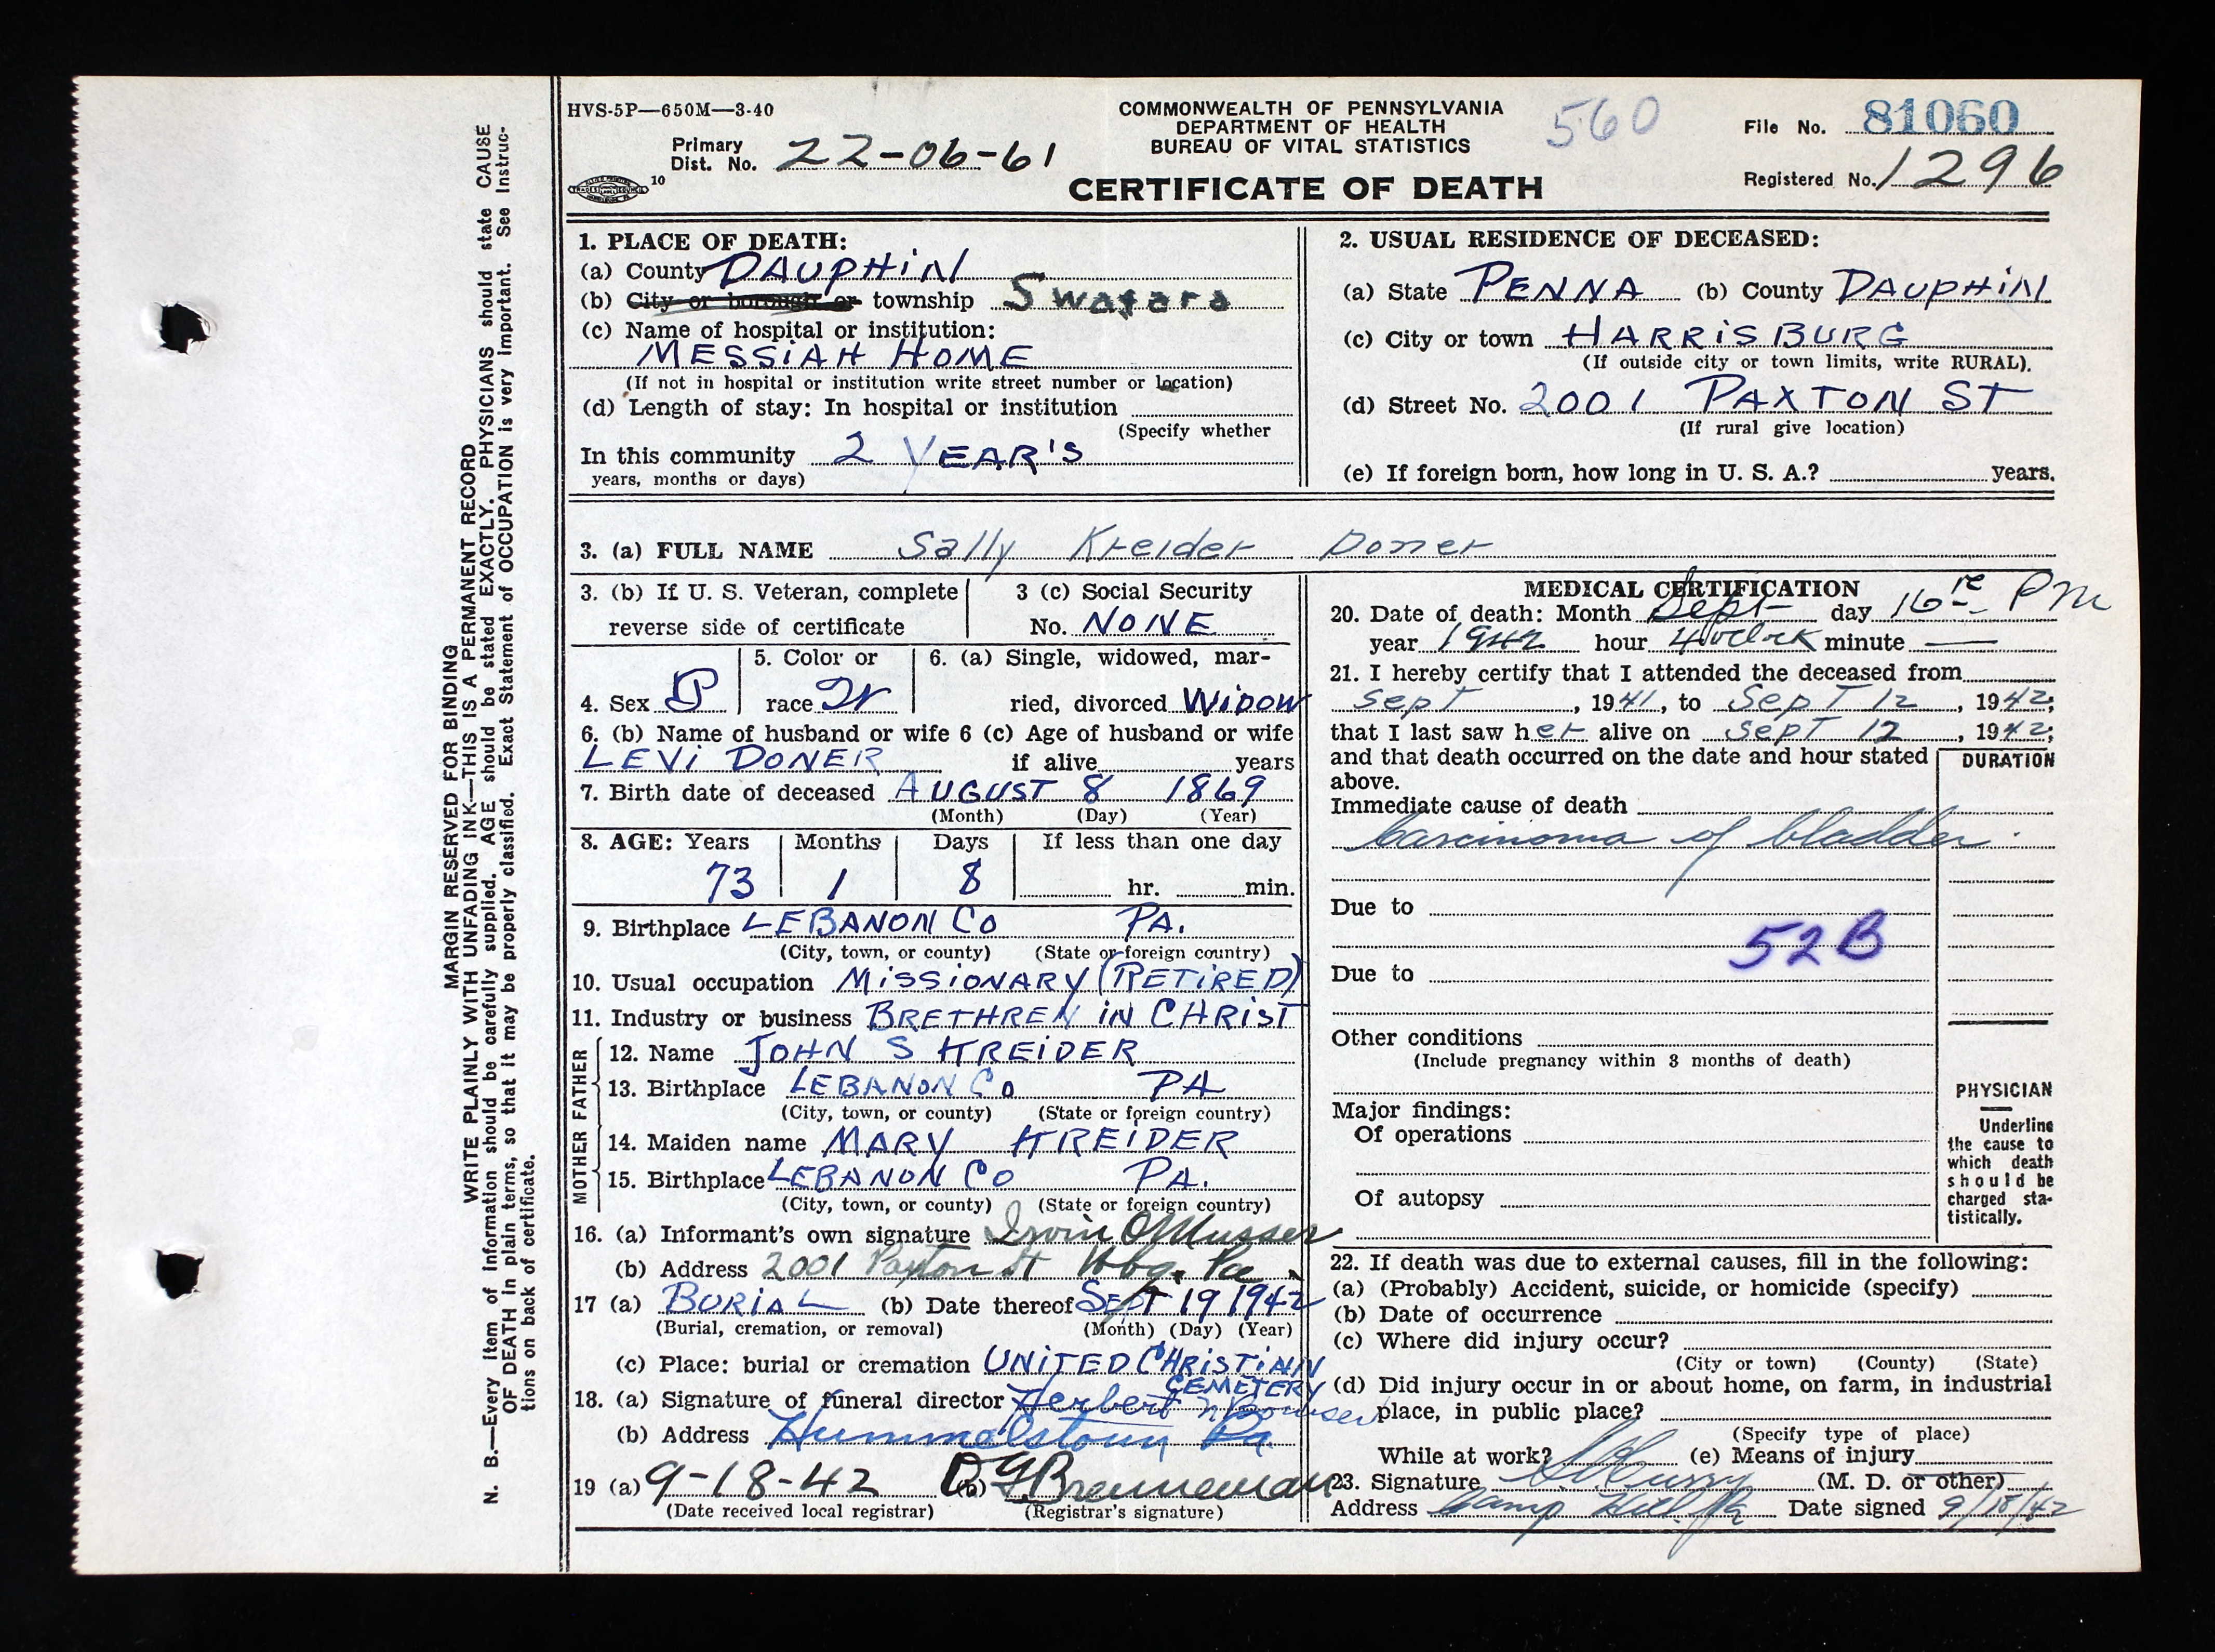 HVS-5P—650M—3-40
Primary Dist. No. 22-06-61
10
COMMONWEALTH OF PENNSYLVANIA
DEPARTMENT OF HEALTH
BUREAU OF VITAL STATISTICS
CERTIFICATE OF DEATH
560
File No. 81060
Registered No. 1296
MARGIN RESERVED FOR BINDING
WRITE PLAINLY WITH UNFADING INK—THIS IS A PERMANENT RECORD
N. B.—Every item of information should be carefully supplied. AGE should be stated EXACTLY. PHYSICIANS should state CAUSE
OF DEATH in plain terms, so that it may be properly classified. Exact Statement of OCCUPATION is very important. See Instruc-
tions on back of certificate.
1. PLACE OF DEATH:
(a) County DAUPHIN
(b) City or borough or township Swatara
(c) Name of hospital or institution:
MESSIAH HOME
(If not in hospital or institution write street number or location)
(d) Length of stay: In hospital or institution
(Specify whether
In this community 2 YEAR'S
years, months or days)
2. USUAL RESIDENCE OF DECEASED:
(a) State PENNA (b) County DAUPHIN
(c) City or town HARRISBURG
(If outside city or town limits, write RURAL).
(d) Street No. 2001 PAXTON ST
(If rural give location)
(e) If foreign born, how long in U. S. A.? years.
3. (a) FULL NAME Sally Kreider Doner
3. (b) If U. S. Veteran, complete
reverse side of certificate
3 (c) Social Security
No. NONE
4. Sex F
5. Color or
race W
6. (a) Single, widowed, mar-
ried, divorced WIDOW
6. (b) Name of husband or wife 6 (c) Age of husband or wife
LEVI DONER if alive years
7. Birth date of deceased AUGUST 8 1869
(Month) (Day) (Year)
8. AGE: Years Months Days If less than one day
73 1 8 hr. min.
9. Birthplace LEBANON CO PA.
(City, town, or county) (State or foreign country)
10. Usual occupation MISSIONARY (RETIRED)
11. Industry or business BRETHREN IN CHRIST
FATHER
12. Name JOHN S KREIDER
13. Birthplace LEBANON CO PA
(City, town, or county) (State or foreign country)
MOTHER
14. Maiden name MARY KREIDER
15. Birthplace LEBANON CO PA.
(City, town, or county) (State or foreign country)
16. (a) Informant's own signature Irvin O Musser
(b) Address 2001 Paxton St Hbg. Pa.
17 (a) BURIAL (b) Date thereof SEPT 19 1942
(Burial, cremation, or removal) (Month) (Day) (Year)
(c) Place: burial or cremation UNITED CHRISTIAN
CEMETERY
18. (a) Signature of funeral director Herbert
(b) Address Hummelstown Pa.
19 (a) 9-18-42 (b) Brenneman
(Date received local registrar) (Registrar's signature)
MEDICAL CERTIFICATION
20. Date of death: Month Sept day 16 PM
year 1942 hour 4 oclock minute —
21. I hereby certify that I attended the deceased from
Sept, 1941, to Sept 12, 1942;
that I last saw her alive on Sept 12, 1942;
and that death occurred on the date and hour stated
above.
DURATION
Immediate cause of death
Carcinoma of bladder
Due to
52B
Due to
Other conditions
(Include pregnancy within 3 months of death)
Major findings:
Of operations
Of autopsy
PHYSICIAN
Underline
the cause to
which death
should be
charged sta-
tistically.
22. If death was due to external causes, fill in the following:
(a) (Probably) Accident, suicide, or homicide (specify)
(b) Date of occurrence
(c) Where did injury occur?
(City or town) (County) (State)
(d) Did injury occur in or about home, on farm, in industrial
place, in public place?
(Specify type of place)
While at work? (e) Means of injury
23. Signature (M. D. or other)
Address Camp Hill Pa Date signed 9/18/42